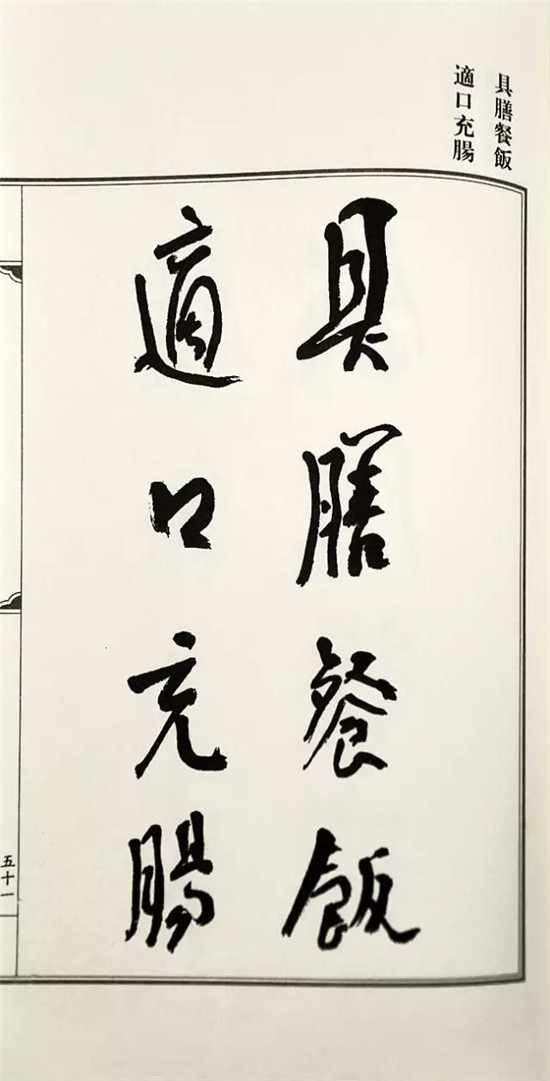 具膳餐飯
適口充腸
具膳餐飯
適口充腸
五十一